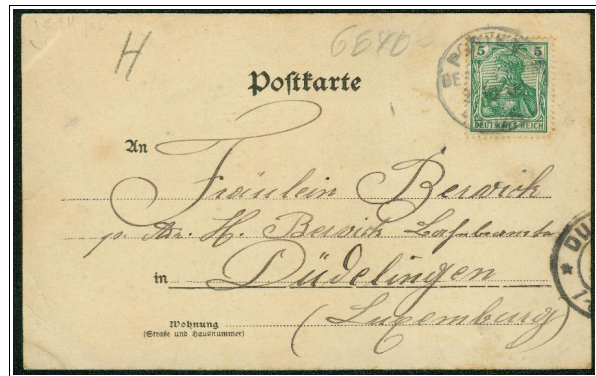 H
6640
Postkarte
5 5
DEUTSCHES REICH
An
Fräulein Berwick
p. Adr. H. Berwick
in Düdelingen
(Luxemburg)
Wohnung
(Straße und Hausnummer)
DU